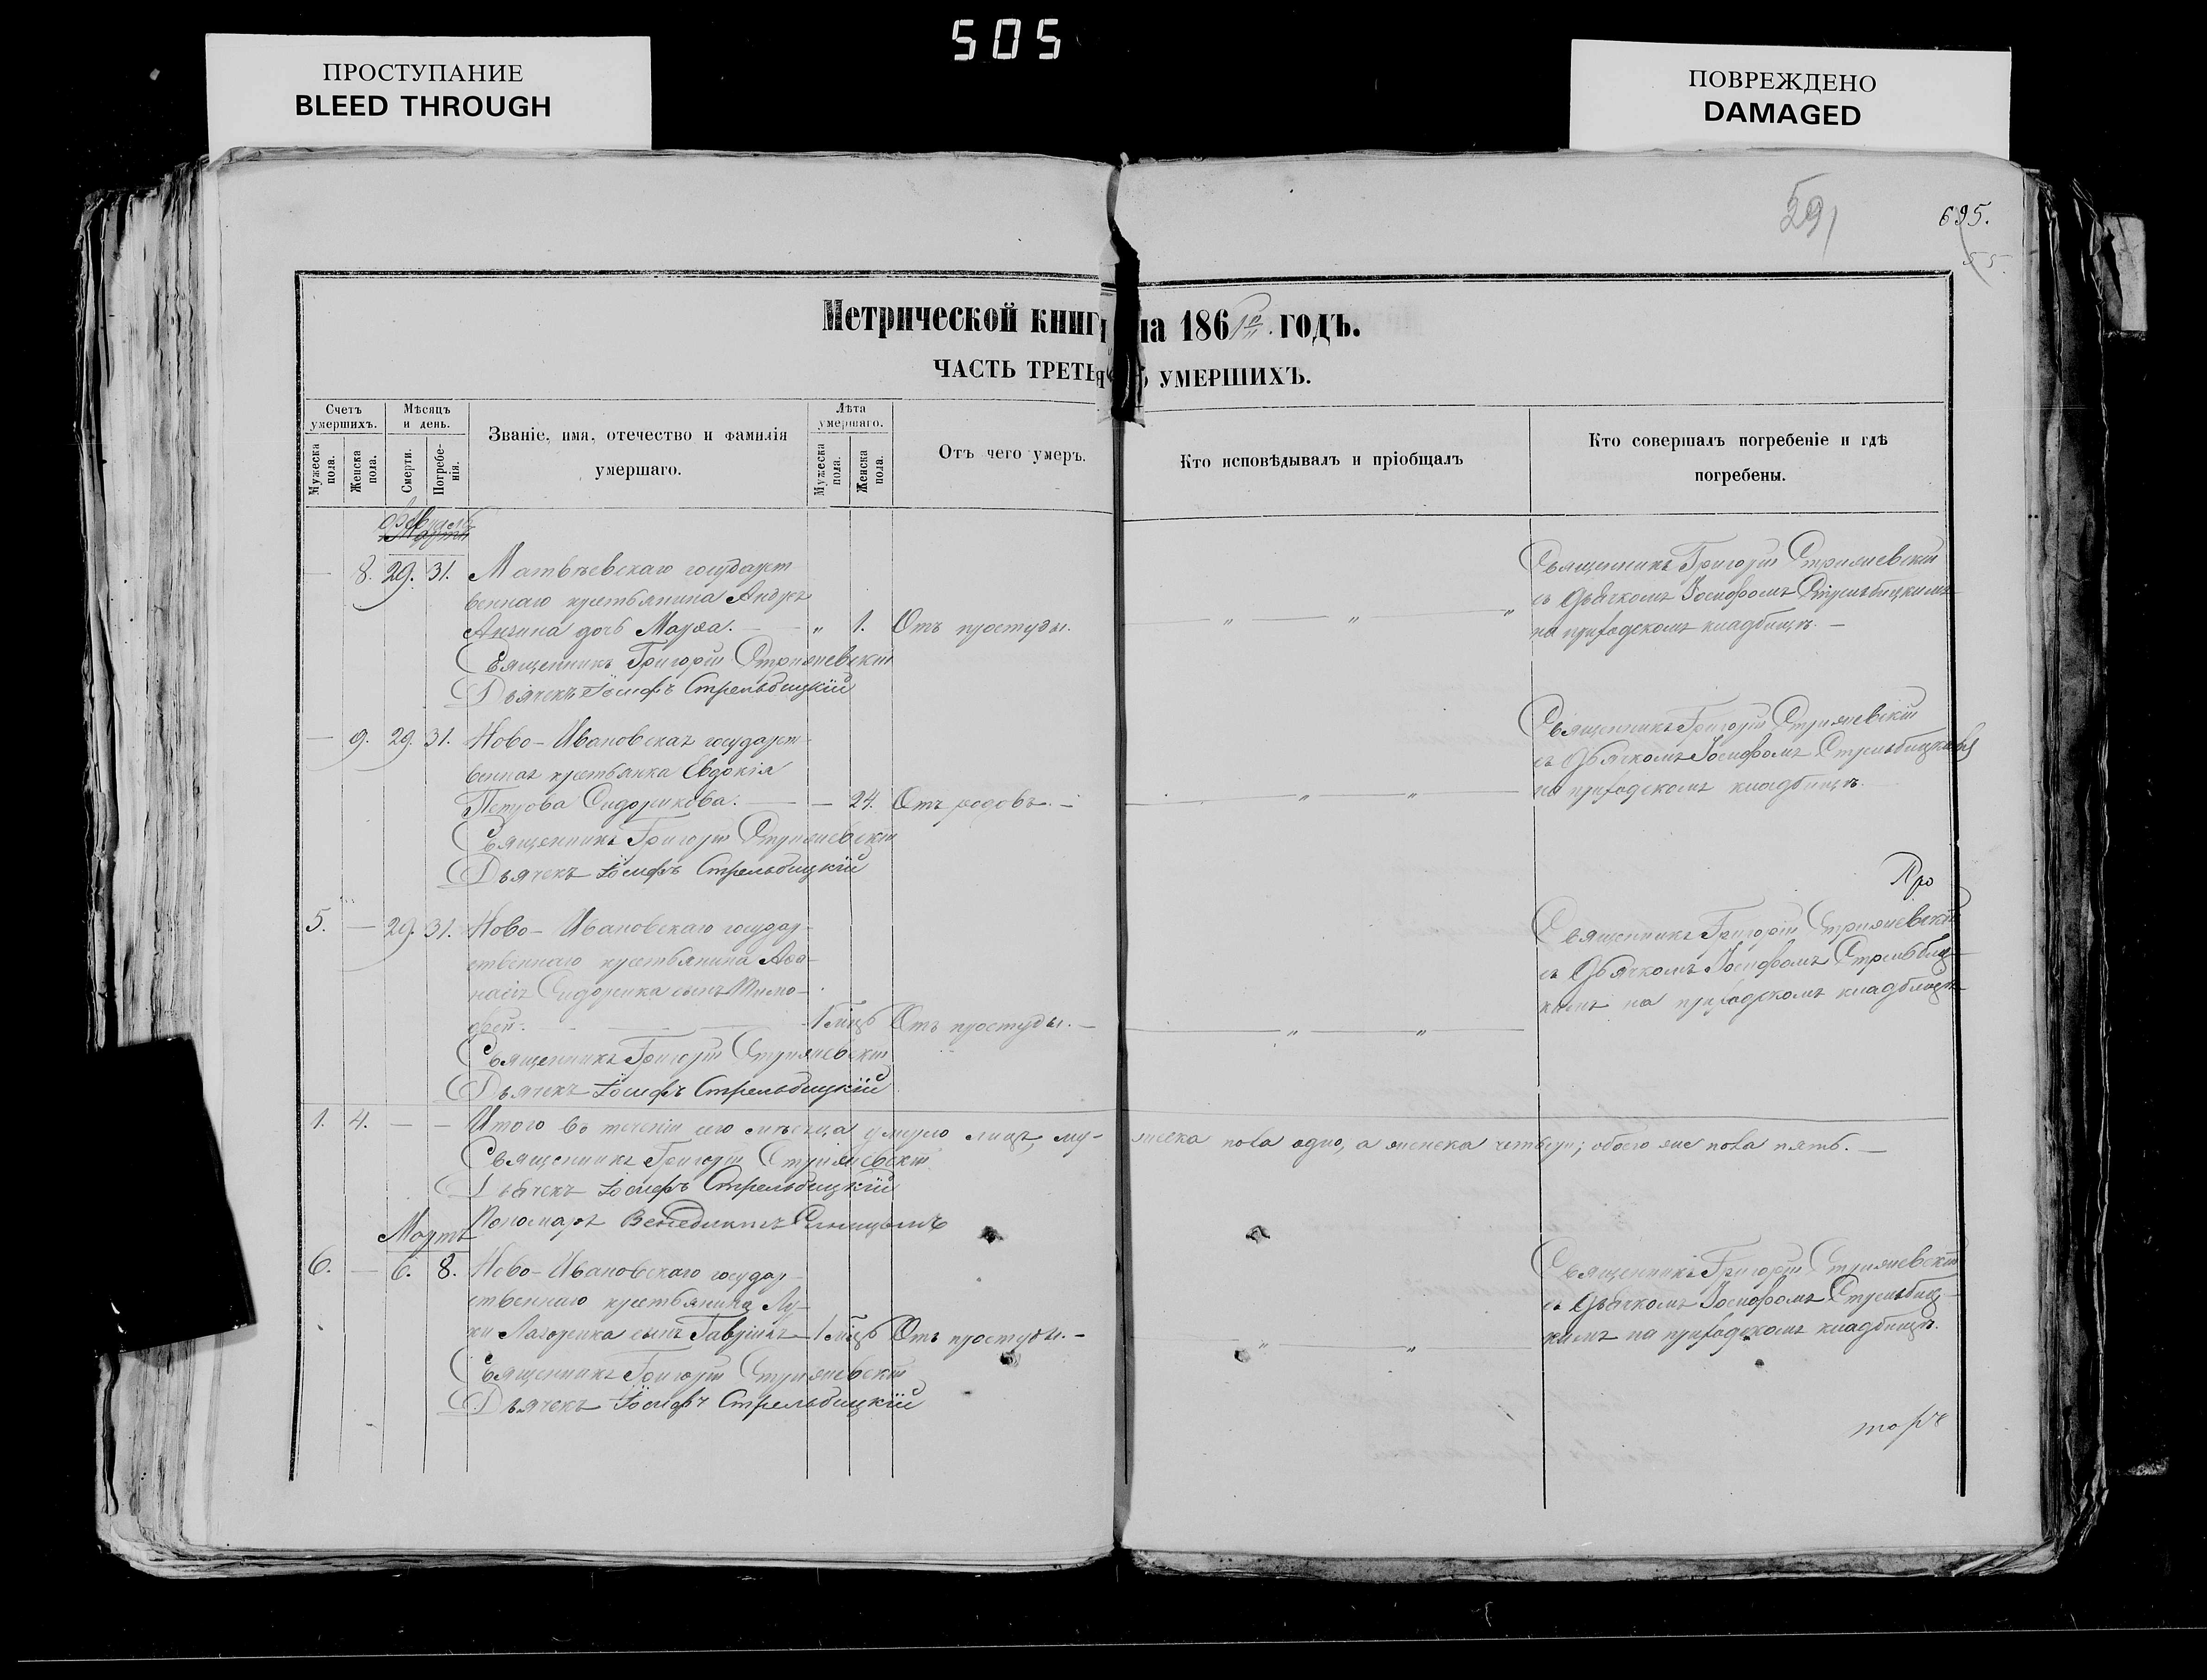 505
ПРОСТУПАНИЕ
BLEED THROUGH
ПОВРЕЖДЕНО
DAMAGED
591
695.
55.
Метрической книги на 1861 годъ.
ЧАСТЬ ТРЕТЬЯ УМЕРШИХЪ.
Счетъ умершихъ.
Мужеска пола.
Женска пола.
Мѣсяцъ и день.
Смерти.
Погребенія.
Званіе, имя, отечество и фамилія
умершаго.
Лѣта умершаго.
Мужеска пола.
Женска пола.
Отъ чего умеръ.
Кто исповѣдывалъ и пріобщалъ
Кто совершалъ погребеніе и гдѣ
погребены.
— 8. 29. 31. Матвѣевскаго государст
веннаго крестьянина Андрея
дочь Марѳа. — „ 1. Отъ простуды. — „ — „ — „
Священникъ Григорій
Дьячекъ Іосифъ Стрельбицкій
Священникъ Григорій
съ Дьячкомъ Іосифомъ Стрельбицкимъ
на приходскомъ кладбищѣ. —
— 9. 29. 31. Ново-Ивановская государст-
венная крестьянка Евдокія
Петрова Сидоренкова. — — 24. Отъ родовъ. — „ — „ —
Священникъ Григорій
Дьячекъ Іосифъ Стрельбицкій
Священникъ Григорій
съ Дьячкомъ Іосифомъ Стрельбицкимъ
на приходскомъ кладбищѣ.
Про
5. — 29. 31. Ново-Ивановскаго государ-
ственнаго крестьянина Аѳа-
насія Сидоренка сынъ Тимо-
ѳей. — 1 мцъ Отъ простуды. — „ — „ —
Священникъ Григорій
Дьячекъ Іосифъ Стрельбицкій
Священникъ Григорій
съ Дьячкомъ Іосифомъ Стрельбиц-
кимъ на приходскомъ кладбищѣ
1. 4. — — Итого въ теченіи сего мѣсяца умерло лицъ, му- жеска пола одно, а женска четыре; обоего же пола пять. —
Священникъ Григорій
Дьячекъ Іосифъ Стрельбицкій
Пономарь Венедиктъ
Мартъ
6. — 6. 8. Ново-Ивановскаго государ-
ственнаго крестьянина Лу-
ки сынъ Гавріилъ — 1 мцъ Отъ простуды. — „ — „ —
Священникъ Григорій
Дьячекъ Іосифъ Стрельбицкій
Священникъ Григорій
съ Дьячкомъ Іосифомъ Стрельбиц-
кимъ на приходскомъ кладбищѣ.